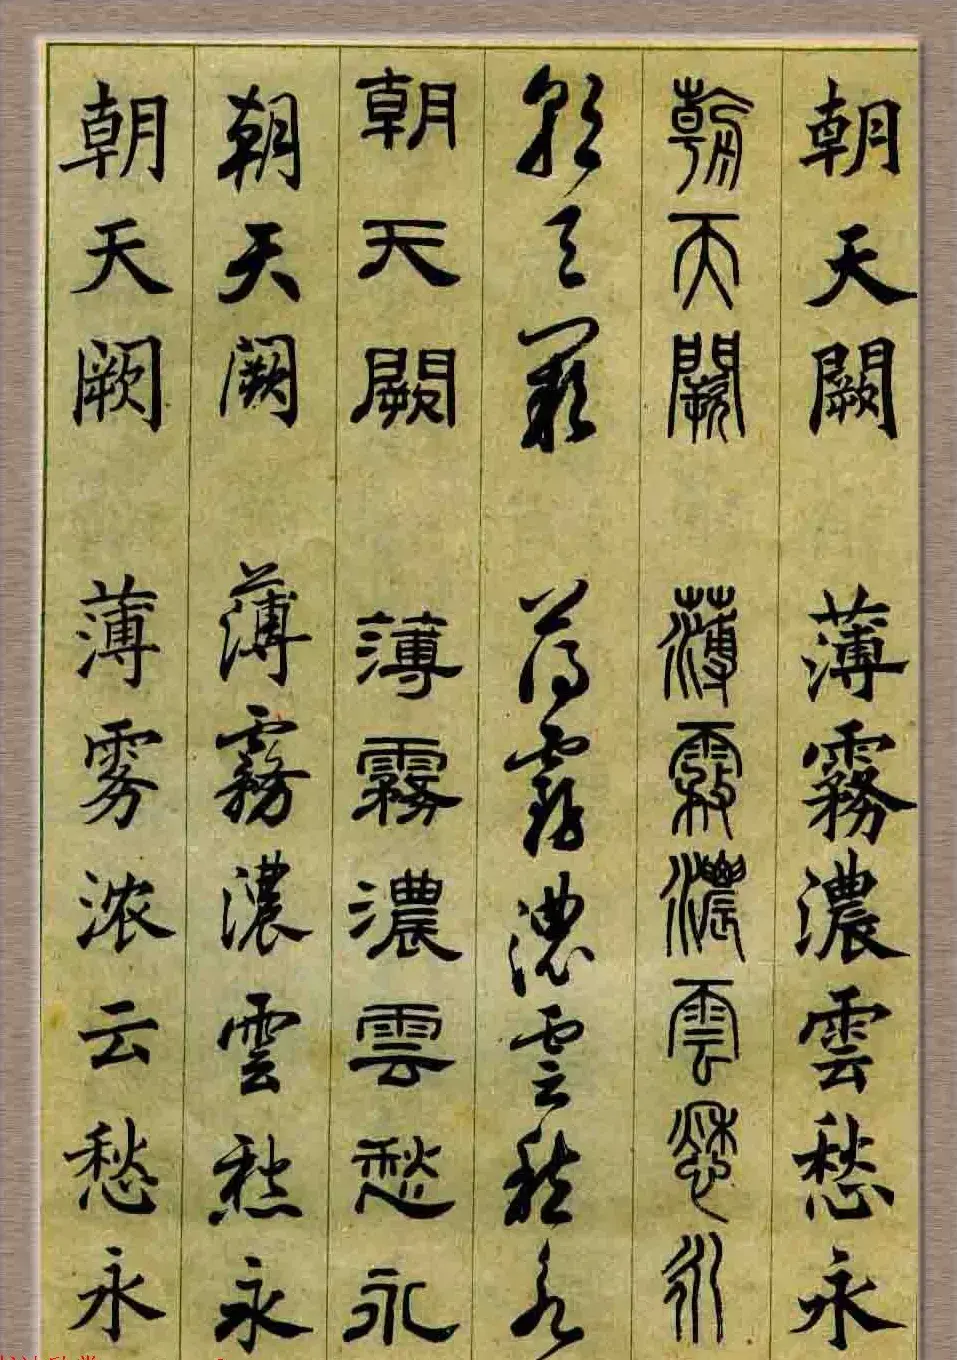 朝天闕 薄霧濃雲愁永
朝天闕 薄霧濃雲愁永
朝天闕 薄霧濃雲愁永
朝天闕 薄霧濃雲愁永
朝天闕 薄霧濃雲愁永
朝天阙 薄雾浓云愁永